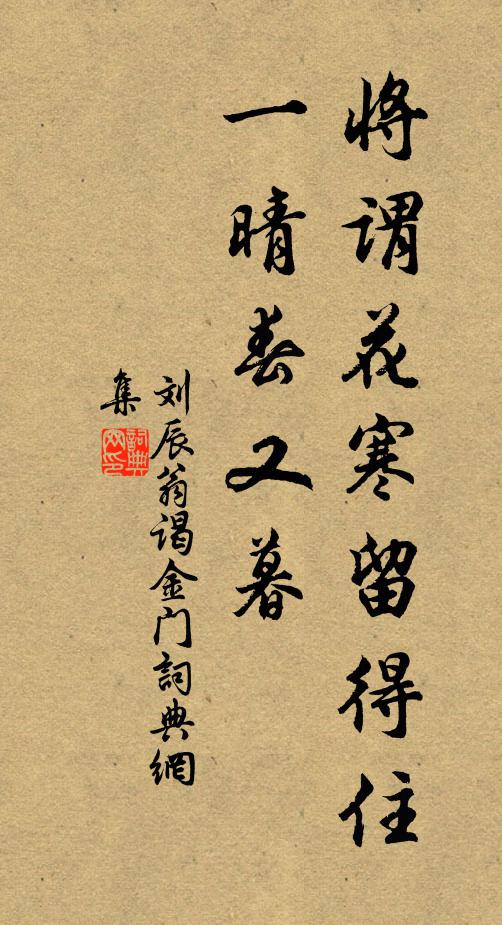 将谓花寒留得住
一晴春又暮
刘辰翁谒金门詞典網
集
詞典
网印